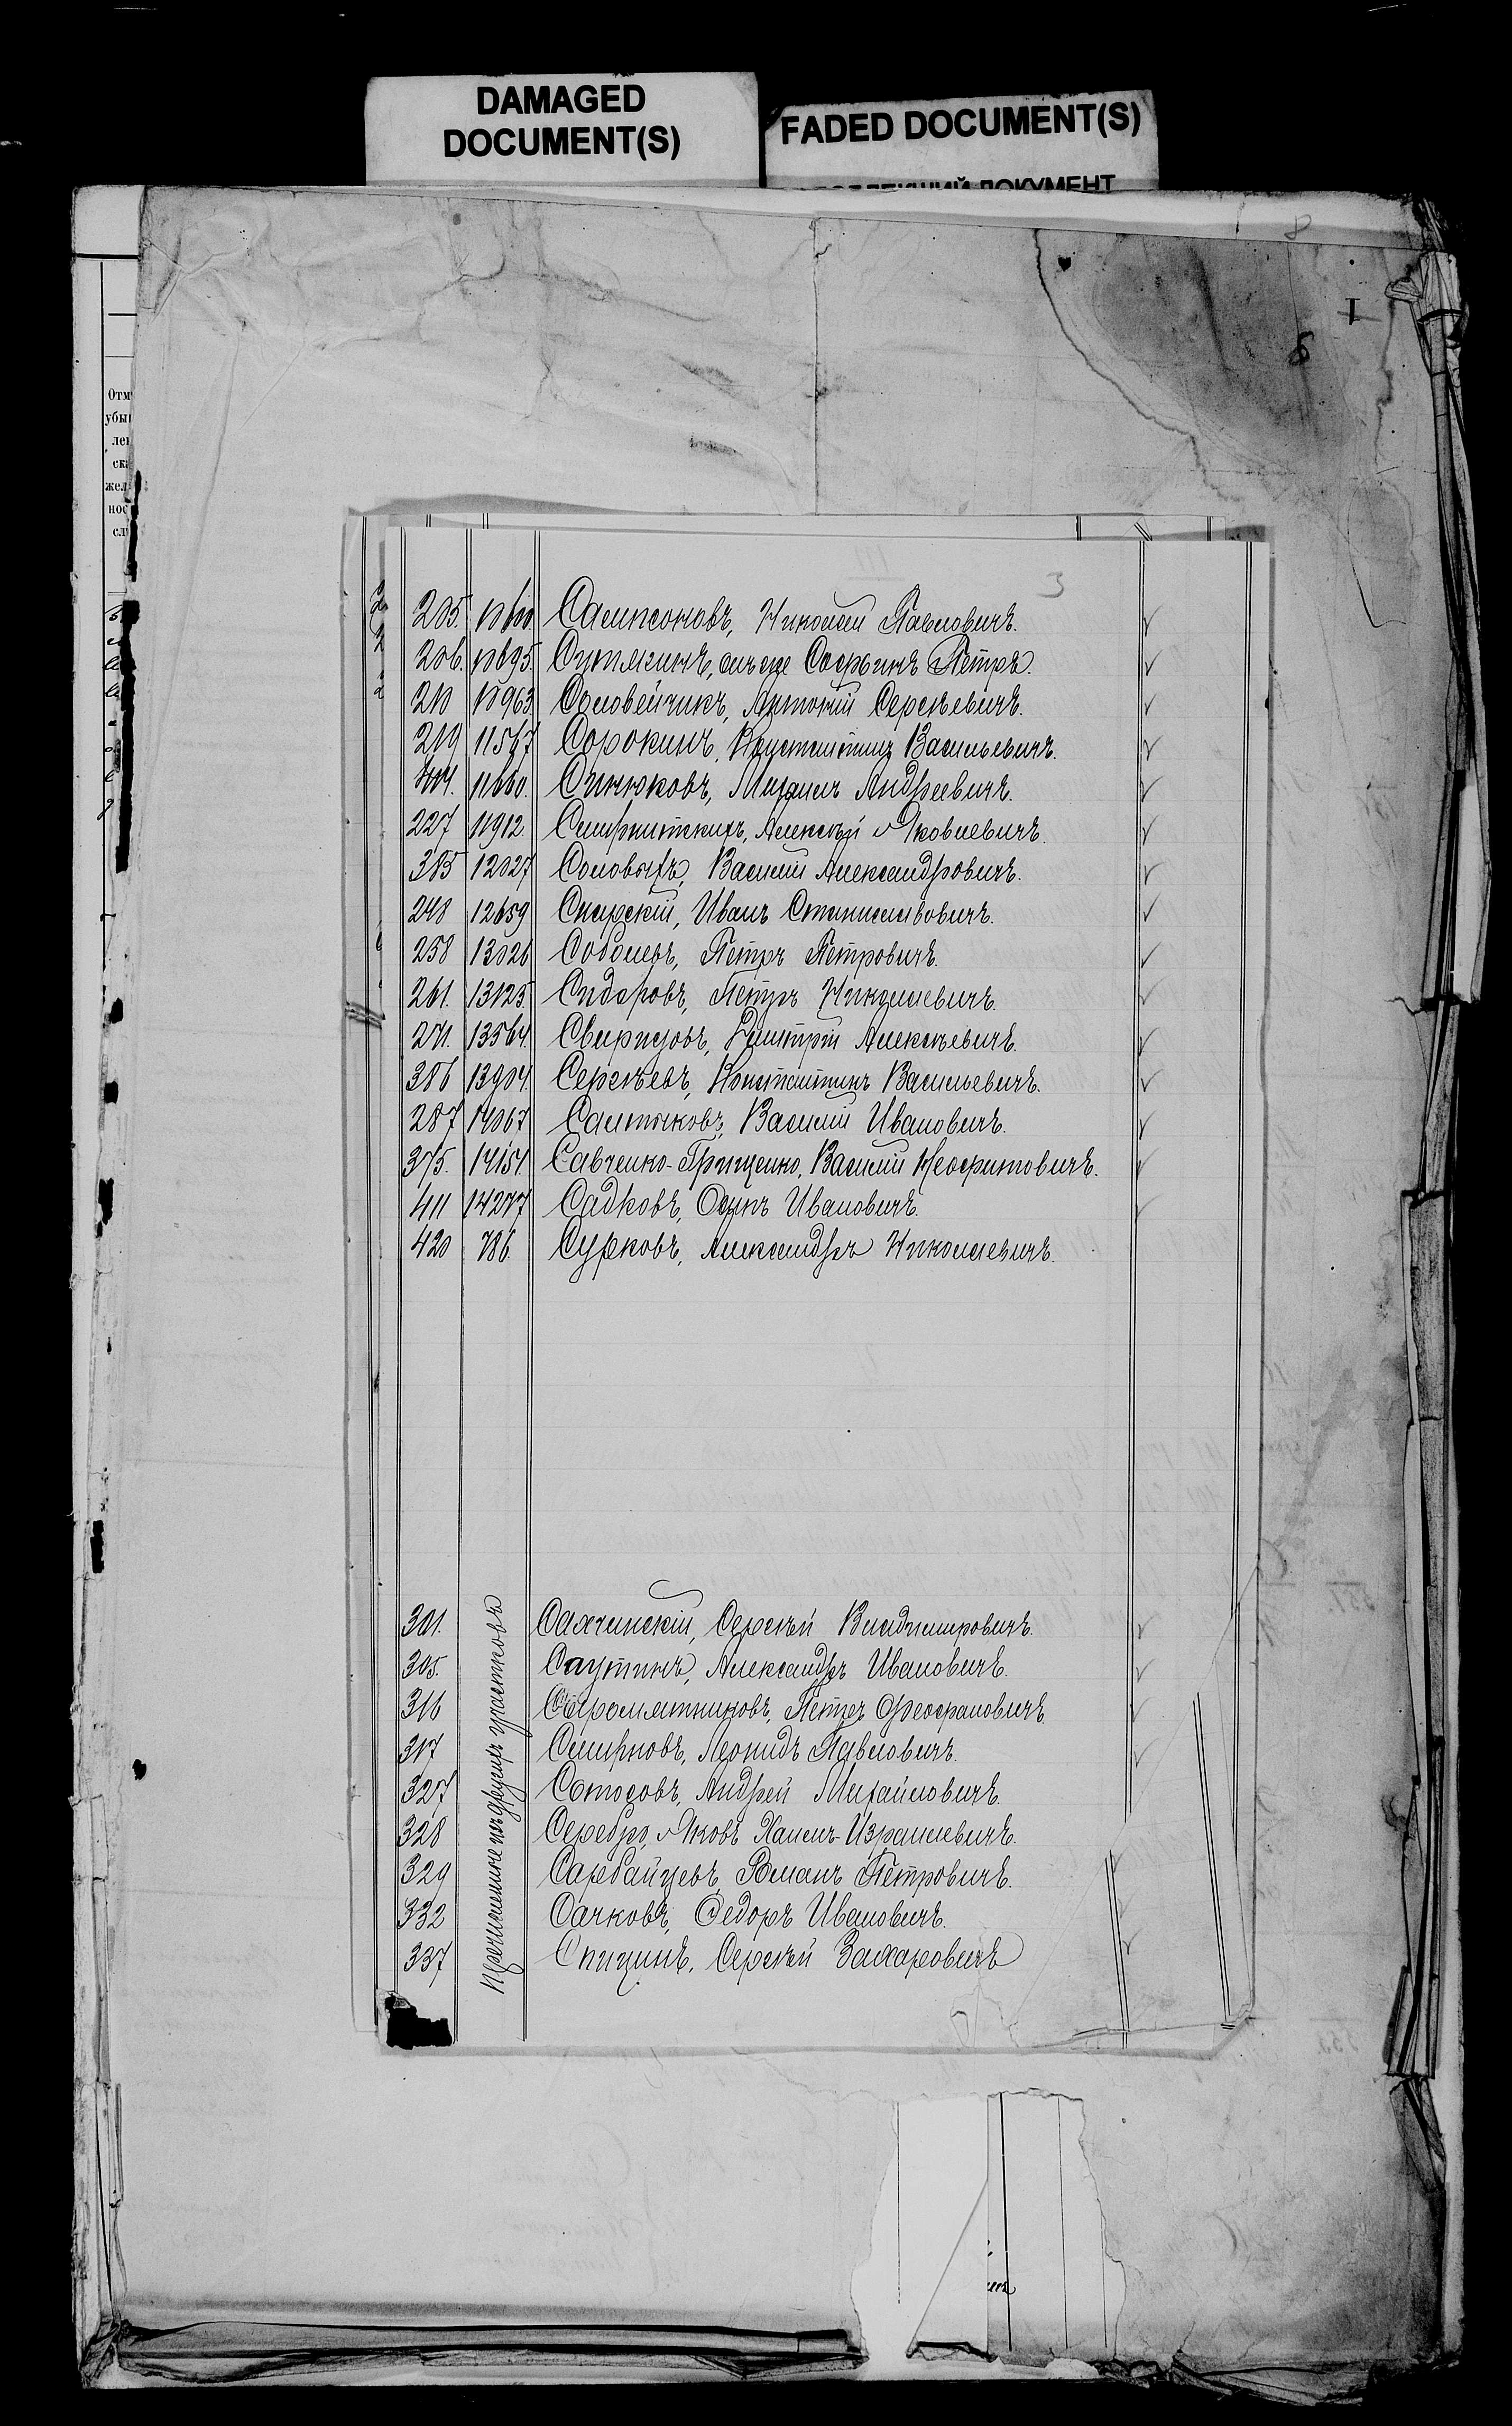 DAMAGED
DOCUMENT(S)
FADED DOCUMENT(S)
ДОКУМЕНТ
8
I
8
Отм
убы
лен
ска
жел
нос
сл
3
205. Сампсоновъ, Николай Павловичъ.
206. 10695. Сутякинъ, онъ же Петръ.
210 10963 Соловейчикъ, Антоній Сергѣевичъ.
219 11567 Сорокинъ, Константинъ Васильевичъ.
11660. Синюковъ, Михаилъ Андреевичъ.
227 11912 Алексѣй Яковлевичъ.
385 12027 Соловыхъ, Василій Александровичъ.
248 12659 Снарскій, Иванъ Станиславовичъ.
258 13026 Соболевъ, Петръ Петровичъ.
261. 13125 Сидоровъ, Петръ Николаевичъ.
271. 13564. Свиридовъ, Дмитрій Алексѣевичъ.
386 13904. Сергѣевъ, Константинъ Васильевичъ.
287 14067 Салтыковъ, Василій Ивановичъ.
375. 14154. Савченко-Грищенко, Василій Неофитовичъ.
411 14277 Садковъ, Осипъ Ивановичъ.
420 786. Сурковъ, Александръ Николаевичъ.
Перечисленные изъ другихъ участковъ
301. Сахчинскій, Сергѣй Владимировичъ.
305. Саутинъ, Александръ Ивановичъ.
316 Сыромятниковъ, Петръ Феофановичъ.
317 Смирновъ, Леонидъ Павловичъ.
327 Сотосовъ, Андрей Михайловичъ.
328 Серебро, Яковъ Хаимъ-Израилевичъ.
329 Сарбайцевъ, Романъ Петровичъ.
332 Сачковъ, Федоръ Ивановичъ.
337 Спицинъ, Сергѣй Захаровичъ